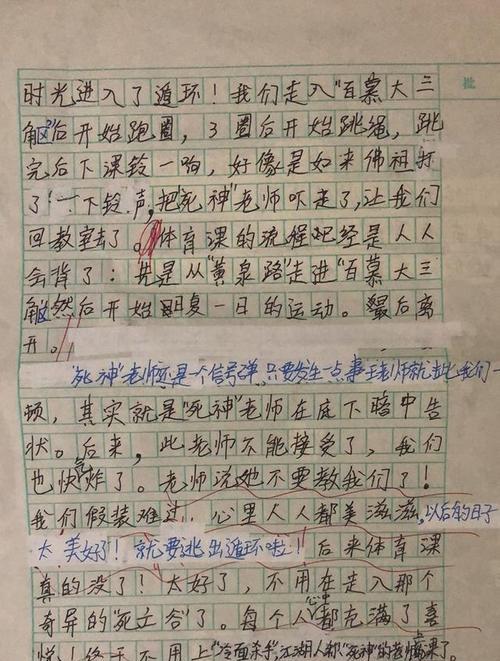 时光进入了循环！我们走入"百慕大三
角区"后开始跑圈，3圈后开始跳绳，跳
完后下课铃一响，好像是如来佛祖打
了一下铃声，把"死神"老师吓走了，让我们
回教室去了。体育课的流程已经是人人
会背了：先是从"黄泉路"走进"百慕大三
角区"然后开始日明复一日的运动。最后离
开。
"死神"老师还是一个信号弹，只要发生一点事王老师就来批我们一
顿，其实就是"死神"老师在底下暗中告
状。后来，此老师不能接受了，我们
也快气炸了。老师说她不要教我们了！
我们假装难过，心里人人都美滋滋，以后的日子
太美好了！就要逃出循环啦！后来体育课
真的没了！太好了，不用在走入那个
奇异的"死亡谷"了。每个人心中都充满了喜
悦！终于不用上"冷面杀手"，江湖人称"死神"的老师的课了。